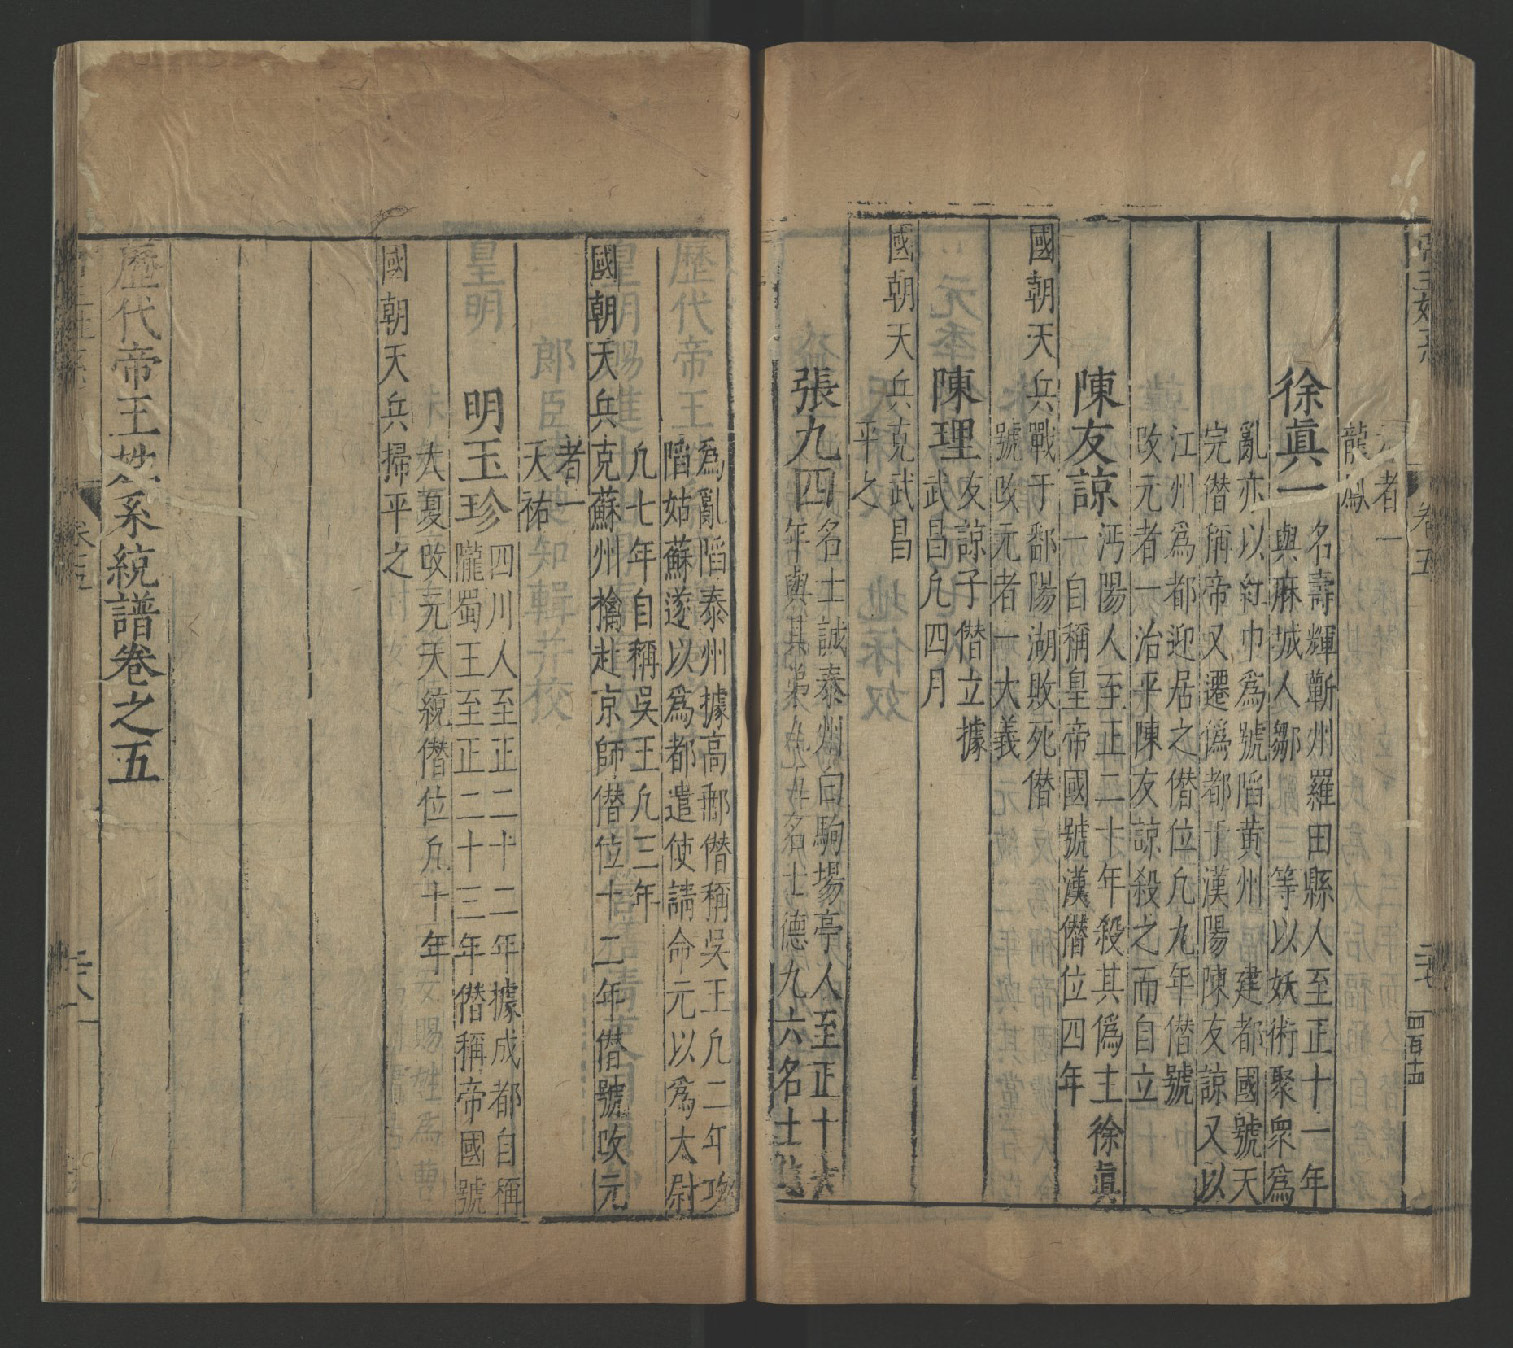 元者一
龍鳳
徐眞一名壽輝蘄州羅田縣人至正十一年
與麻城人鄒 等以妖術聚衆爲
亂亦以紅巾爲號陷黄州 建都國號天
完僭稱帝又遷僞都于漢陽陳友諒又以
江州爲都迎居之僭位凢九年僭號
改元者一治平陳友諒殺之而自立
陳友諒沔陽人至正二十年殺其僞主徐眞
一自稱皇帝國號漢僭位四年
國朝天兵戰于鄱陽湖敗死僭
號改元者一大義
陳理友諒子僭立據
武昌凢四月
國朝天兵克武昌
平之
張九四名士誠泰州白駒場亭人至正十六
年與其弟九五名士德九六名士信
爲亂陷泰州據高郵僭稱吳王凢二年攻
陷姑蘇遂以爲都遣使請命元以爲太尉
凢七年自稱吳王凢三年
國朝天兵克蘇州擒赴京師僭位十二年僭號改元
者一
天祐
明玉珍四川人至正二十二年據成都自稱
隴蜀王至正二十三年僭稱帝國號
大夏改元天統僭位凢十年
國朝天兵掃平之
歷代帝王姓系統譜卷之五